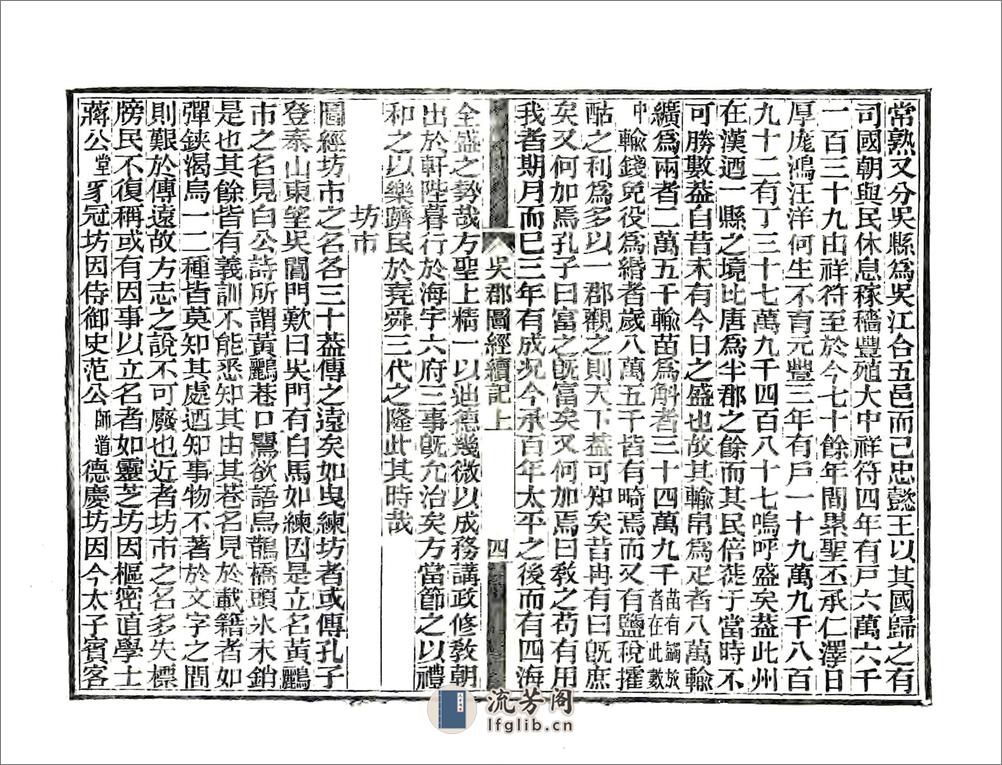 常熟又分吳縣爲吳江合五邑而已忠懿王以其國歸之有
司國朝與民休息稼穡豐殖大中祥符四年有戶六萬六千
一百三十九由祥符至於今七十餘年間累聖丕承仁澤日
厚庬鴻汪洋何生不育元豐三年有戶一十九萬九千八百
九十二有丁三十七萬九千四百八十七嗚呼盛矣葢此州
在漢迺一縣之境比唐爲半郡之餘而其民倍蓰于當時不
可勝數葢自昔未有今日之盛也故其輸帛爲疋者八萬輸
纊爲兩者二萬五千輸苗爲斛者三十四萬九千苗有蠲放者在此數
中輸錢免役爲緡者歲八萬五千皆有畸焉而又有鹽稅㩁
酤之利爲多以一郡觀之則天下葢可知矣昔冉有曰旣庶
矣又何加焉孔子曰富之旣富矣又何加焉曰敎之苟有用
我者期月而已三年有成况今承百年太平之後而有四海
吳郡圖經續記上 四
全盛之勢哉方聖上精一以迪德幾微以成務講政修敎朝
出於軒陛暮行於海宇六府三事旣允治矣方當節之以禮
和之以樂躋民於堯舜三代之隆此其時哉
坊市
圖經坊市之名各三十葢傳之遠矣如曳練坊者或傳孔子
登泰山東望吳閶門歎曰吳門有白馬如練因是立名黃鸝
市之名見白公詩所謂黃鸝巷口鸎欲語烏鵲橋頭氷未銷
是也其餘皆有義訓不能悉知其由其巷名見於載籍者如
彈鋏渴烏一二種皆莫知其處迺知事物不著於文字之間
則艱於傳遠故方志之說不可廢也近者坊市之名多失標
牓民不復稱或有因事以立名者如靈芝坊因樞密直學士
蔣公堂豸冠坊因侍御史范公師道德慶坊因今太子賓客
流芳阁
lfglib.cn